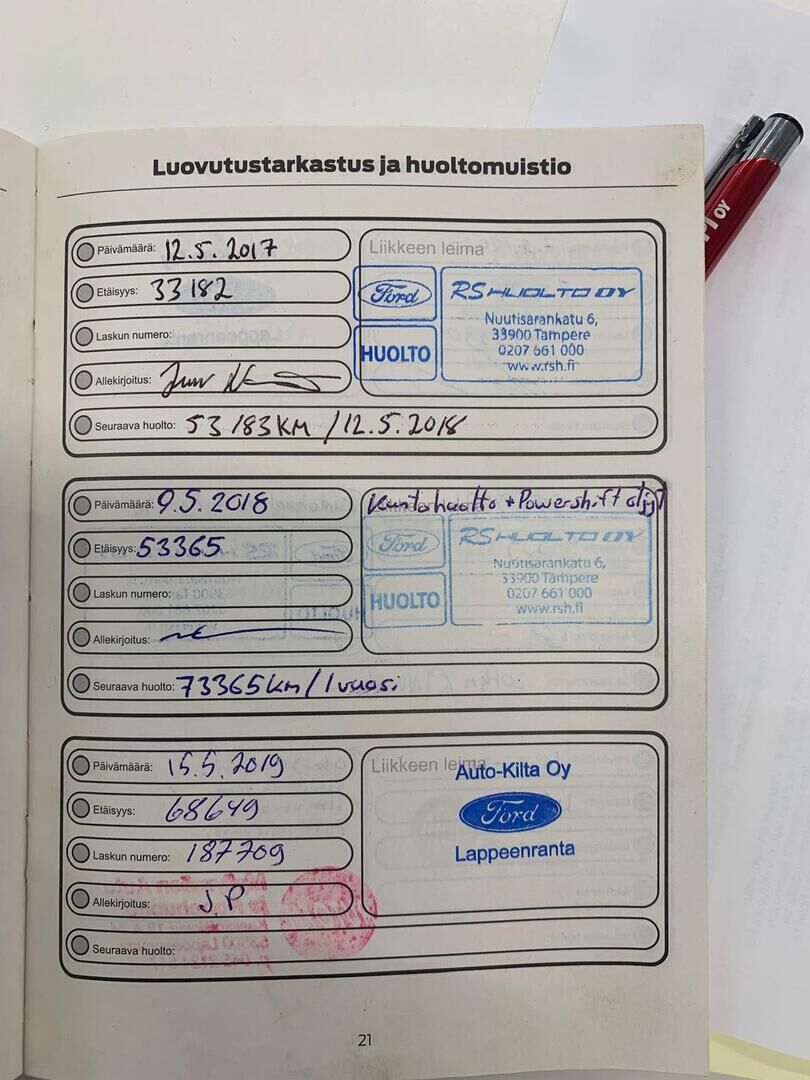 Luovutustarkastus ja huoltomuistio
Päivämäärä: 12.5.2017
Liikkeen leima
Etäisyys: 33182
Ford
HUOLTO
RS HUOLTO OY
Nuutisarankatu 6,
33900 Tampere
0207 661 000
www.rsh.fi
Laskun numero:
Allekirjoitus:
Seuraava huolto: 53183KM / 12.5.2018
Päivämäärä: 9.5.2018
Kuntohuolto + Powershift öljyt
Etäisyys: 53365
Ford
HUOLTO
RS HUOLTO OY
Nuutisarankatu 6,
33900 Tampere
0207 661 000
www.rsh.fi
Laskun numero:
Allekirjoitus:
Seuraava huolto: 73365km / 1 vuosi
Päivämäärä: 15.5.2019
Liikkeen leima
Auto-Kilta Oy
Ford
Lappeenranta
Etäisyys: 68649
Laskun numero: 187709
Allekirjoitus: J.P
Seuraava huolto:
21
OY